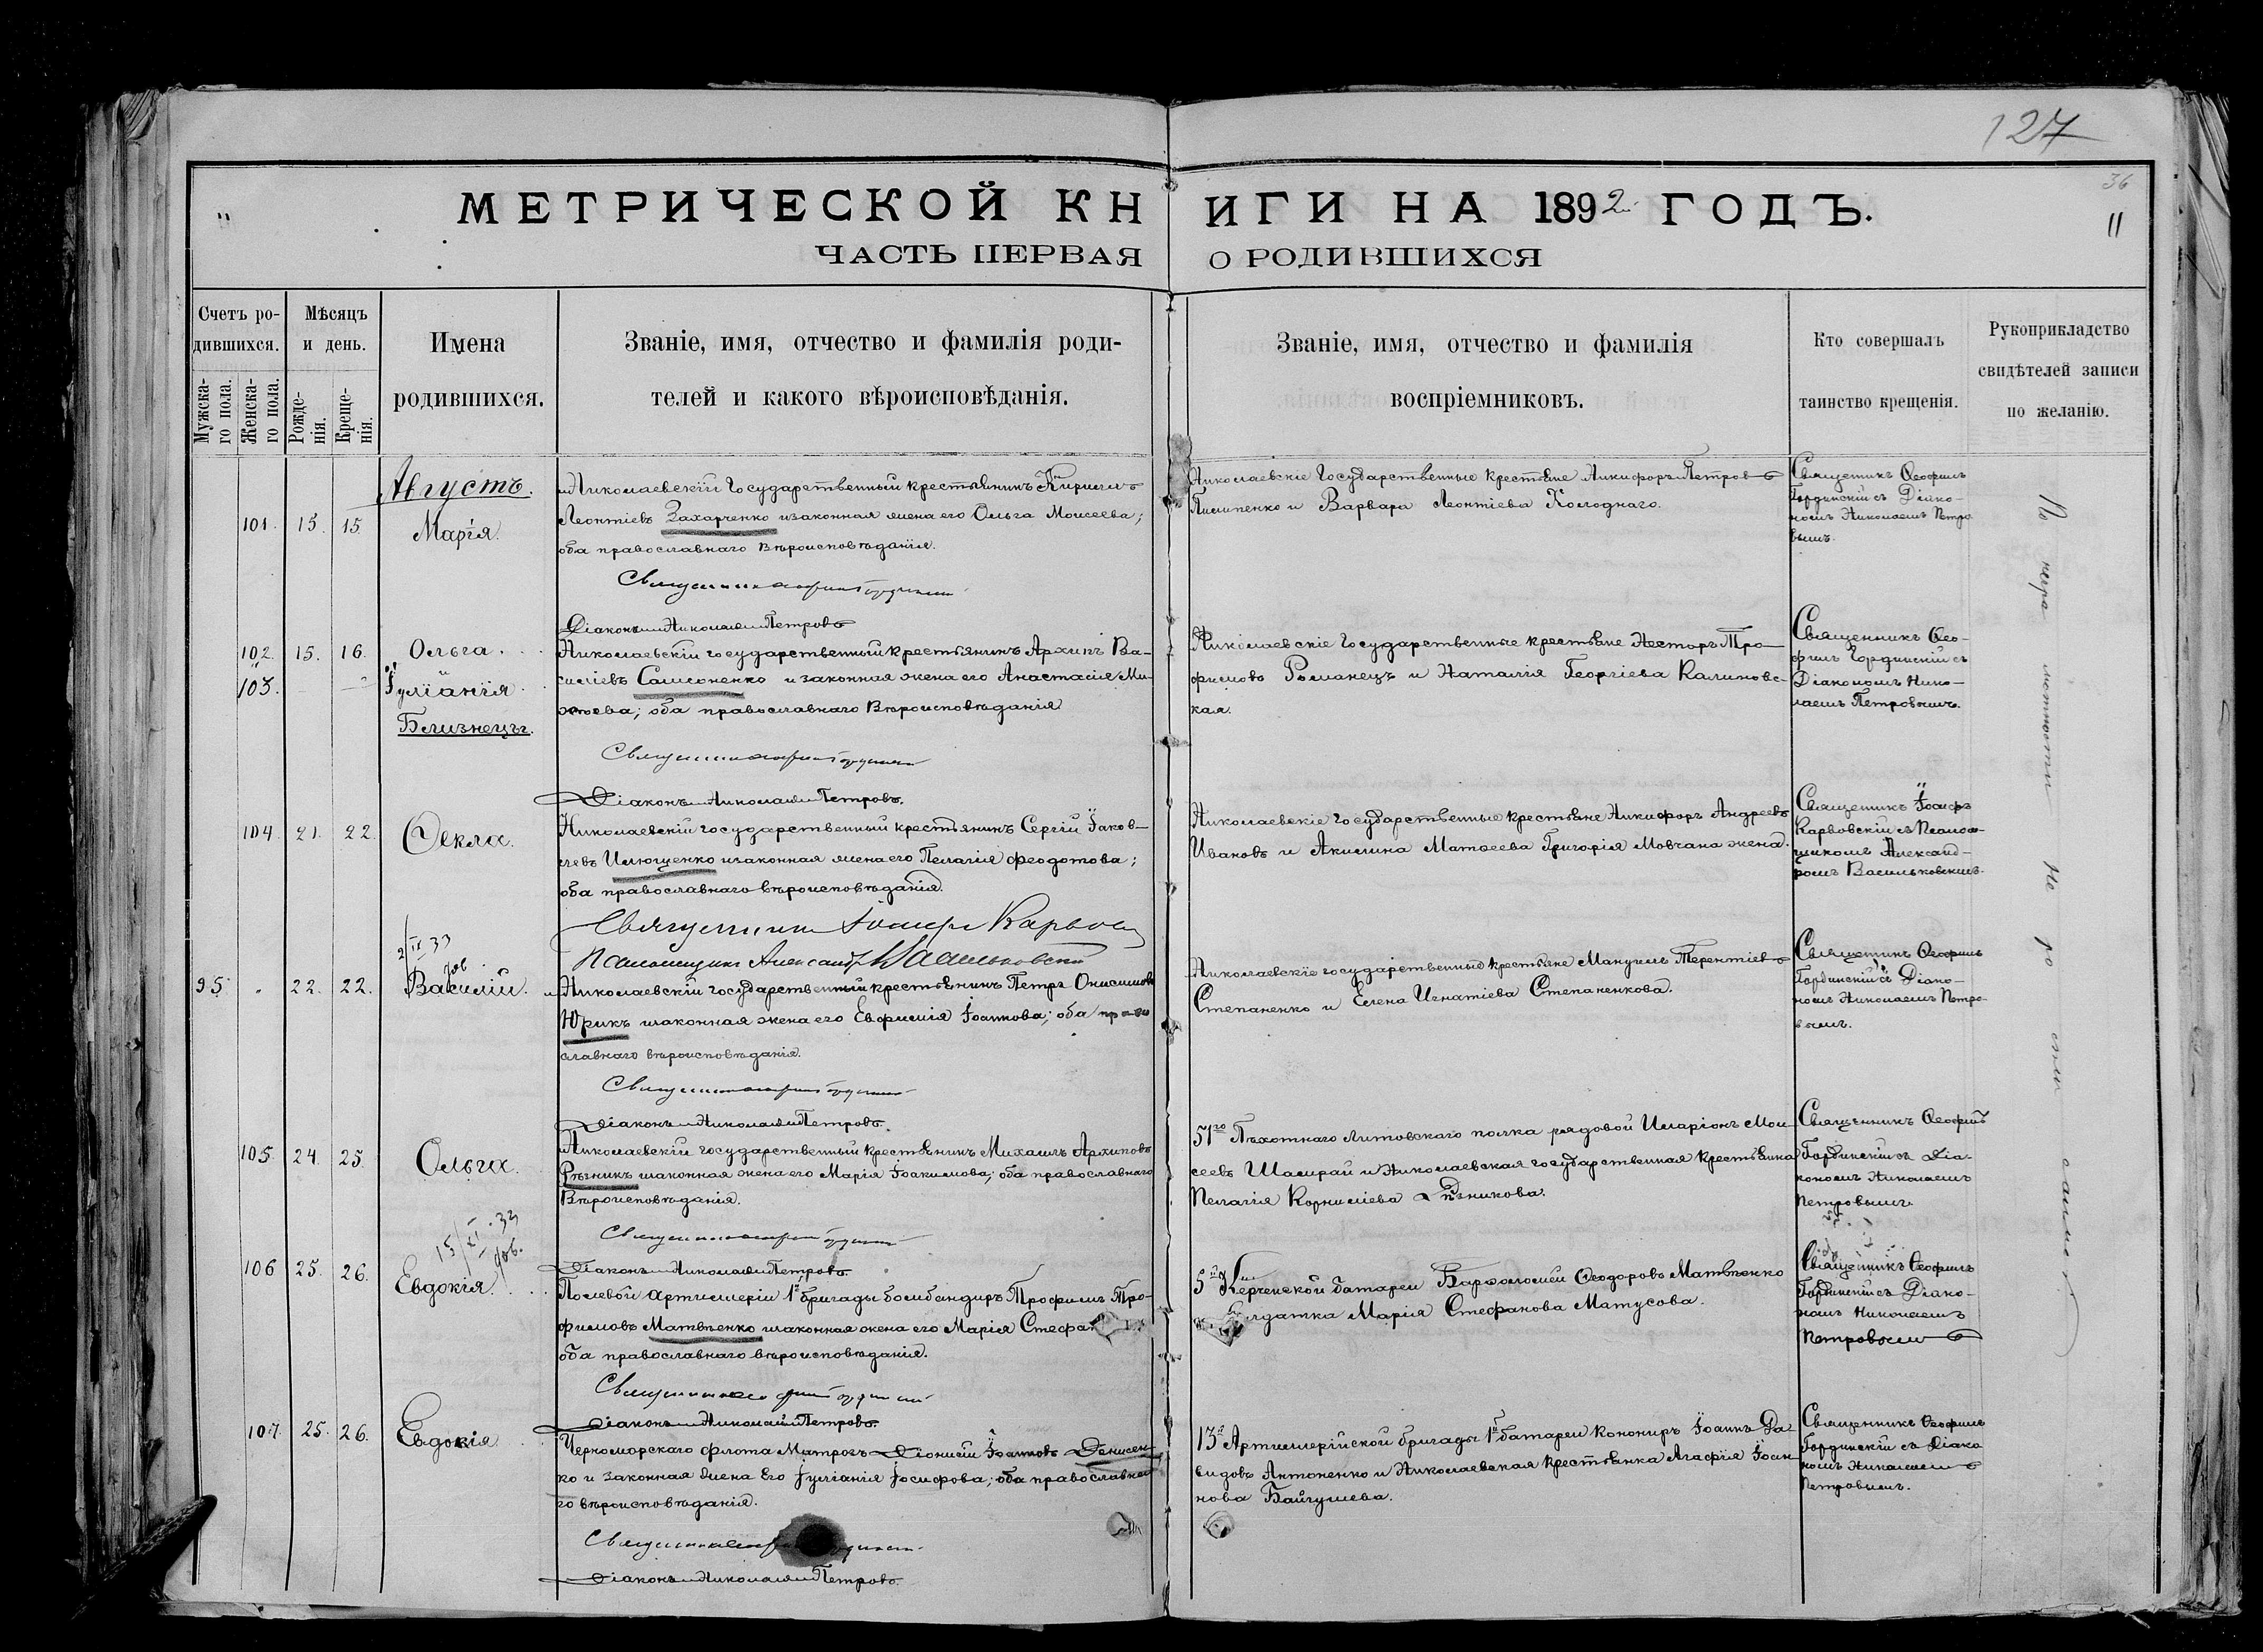 127
36
МЕТРИЧЕСКОЙ КНИГИ НА 1892 ГОДЪ.
11
ЧАСТЬ ПЕРВАЯ О РОДИВШИХСЯ
Счетъ родившихся.
Мужскаго пола.
Женскаго пола.
Мѣсяцъ и день.
Рожденія.
Крещенія.
Имена
родившихся.
Званіе, имя, отчество и фамилія роди-
телей и какого вѣроисповѣданія.
Званіе, имя, отчество и фамилія
воспріемниковъ.
Кто совершалъ
таинство крещенія.
Рукоприкладство
свидѣтелей записи
по желанію.
Августъ.
101. 15. 15. Марія.
Николаевскій Государственный крестьянинъ Кириллъ
Леонтіевъ Захарченко и законная жена его Ольга Моисеева;
оба православнаго вѣроисповѣданія.
Діаконъ Николай Петровъ
Николаевскіе Государственные крестьяне Никифоръ Петровъ
Пилипенко и Варвара Леонтіева Колоднаго.
Священникъ Ѳеофилъ
Гординскій съ Діако-
номъ Николаемъ Петро
вымъ.
102. 15. 16. Ольга.
103. Іуліанія.
Близнецы.
Николаевскій государственный крестьянинъ Архипъ Ва-
силіевъ Самсоненко и законная жена его Анастасія Ми-
хѣева; оба православнаго вѣроисповѣданія
Діаконъ Николай Петровъ.
Николаевскіе Государственные крестьяне Несторъ Тро-
фимовъ Романецъ и Наталія Георгіева Калиновс-
кая.
Священникъ Ѳео-
филъ Гординскій съ
Діакономъ Нико-
лаемъ Петровымъ.
104. 21. 22. Ѳекла.
Николаевскій государственный крестьянинъ Сергій Іаков-
левъ Илющенко и законная жена его Пелагія Феодотова;
оба православнаго вѣроисповѣданія.
Священникъ Іосифъ Карвов
Псаломщикъ Александръ Васильковскій
Николаевскіе Государственные крестьяне Никифоръ Андреевъ
Ивановъ и Акилина Матѳеева Григорія Мовчана жена.
Священникъ Іосифъ
Карвовскій съ Псалом-
щикомъ Александ-
ромъ Васильковскимъ.
2/IX 33
95. 22. 22. Василій.
Николаевскій государственный крестьянинъ Петръ Онисимовъ
Юрикъ и законная жена его Евфимія Іоаннова; оба право
славнаго вѣроисповѣданія.
Діаконъ Николай Петровъ.
Николаевскіе государственные крестьяне Мануилъ Терентіевъ
Степаненко и Елена Игнатіева Степаненкова.
Священникъ Ѳеофилъ
Гординскій съ Діако-
номъ Николаемъ Петро-
вымъ.
105. 24. 25. Ольга.
Николаевскій государственный крестьянинъ Михаилъ Архиповъ
Рѣзникъ и законная жена его Марія Іоакимова; оба православнаго
вѣроисповѣданія.
Діаконъ Николай Петровъ
51го Пѣхотнаго Литовскаго полка рядовой Иларіонъ Мои-
сеевъ Шамрай и Николаевская государственная крестьянка
Пелагія Корниліева Рѣзникова.
Священникъ Ѳеофилъ
Гординскій съ Діа-
кономъ Николаемъ
Петровымъ.
106 25. 26. Евдокія.
Полевой артиллеріи 1й бригады бомбандиръ Трофимъ Тро-
фимовъ Матвѣенко и законная жена его Марія Стефа
оба православнаго вѣроисповѣданія.
Діаконъ Николай Петровъ.
5й Керченской батареи Варѳоломей Ѳеодоровъ Матвѣенко
и Солдатка Марія Стефанова Матусова.
Священникъ Ѳеофилъ
Гординскій съ Діако-
номъ Николаемъ
Петровымъ
107. 25. 26. Евдокія.
Черноморскаго флота Матросъ Діонисій Іоанновъ Денисен-
ко и законная жена его Іуліанія Іосифова; оба православна
го вѣроисповѣданія.
Діаконъ Николай Петровъ.
13й Артиллерійской бригады 1й батареи Канониръ Іоаннъ Да-
видовъ Антоненко и Николаевская крестьянка Агафія Іоан-
нова Байгушева.
Священникъ Ѳеофилъ
Гординскій съ Діако
номъ Николаемъ
Петровымъ.